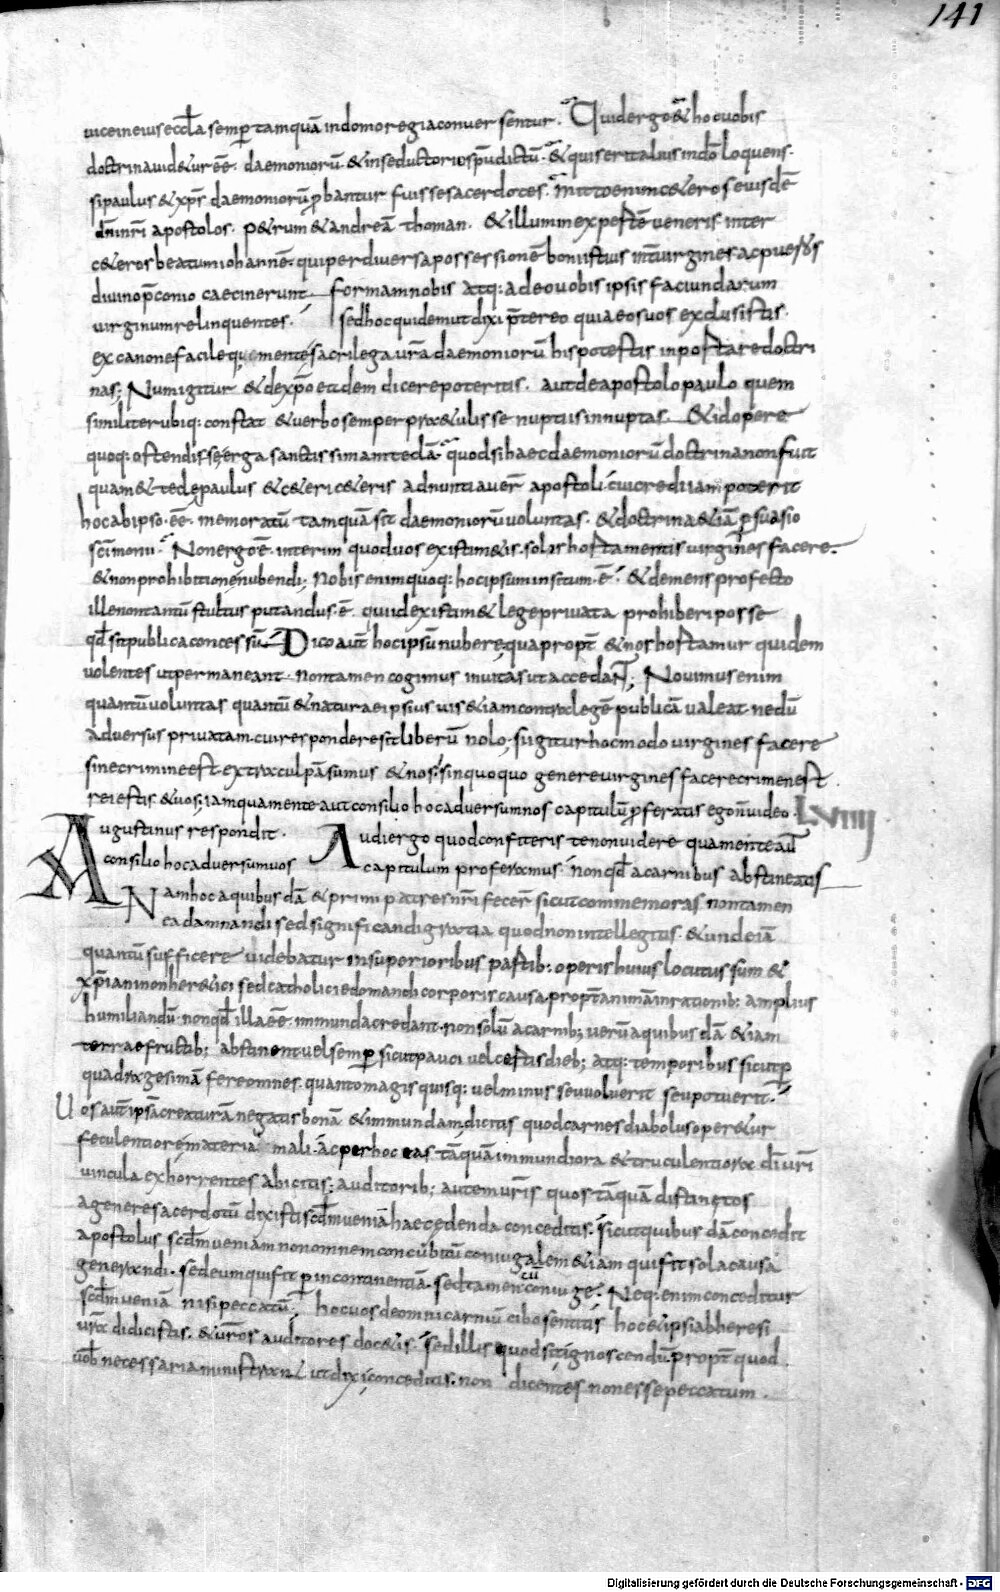 141
uiceineius eccl̄a semper tamquā in domo regia conuersentur. Quid ergo & hoc uobis
doctrina uid&ur eē. daemoniorū. & in seductorio sp̄u dictū. & quis erit alius in dn̄o loquens.
si paulus & xp̄s daemoniorū p̄bantur fuisse sacerdotes. mitto enim c&eros eiusdē
dn̄i nr̄i apostolos. p&rum & andreā thoman. & illum inexpertē ueneris inter
c&eros beatum iohannē. qui per diuersa possessionē boni istius int̄ uirgines ac pueros
diuino p̄conio caecinerunt formam nobis atq: adeo uobis ipsis faciundarum
uirginum relinquentes. sed hoc quidem ut dixi p̄tereo quia eos uos exclusistis.
ex canone facileq; mente sacrilega ur̄a daemoniorū his potestis inportare doctri
nas; Num igitur & de xp̄o eadem dicere poteritis. aut de apostolo paulo quem
similiter ubiq: constat & uerbo semper praetulisse nuptis innuptas. & id opere
quoq: ostendisse erga sanctissimam tedā. quodsi haec daemoniorū doctrina non fuit
quam & tede paulus & c&eri c&eris adnuntiauer̄ apostoli. cui credi iam poterit
hoc ab ipso. eē. memoratū tamquā sit daemoniorū uoluntas. & doctrina &iā p̄suasio
sc̄imonii. Non ergo ē. interim quod uos existim&is. solis hortamentis uirgines facere.
& non prohibitione nubendi; nobis enim quoq: hoc ipsum insitum. ē. & demens profecto
ille non tantū stultus putandus. ē. qui id existim& lege priuata prohiberi posse
qd̄ sit publica concessū. Dico aut̄ hoc ipsū nubere; quapropt̄ & nos hortamur quidem
uolentes ut permaneant. non tamen cogimus inuitas ut accedant; Nouimus enim
quantū uoluntas quantū & natura ei ipsius uis &iam contra legē publicā ualeat nedū
aduersus priuatam. cui respondere sit liberū nolo; si igitur hoc modo uirgines facere
sine crimine est. extra culpā sumus & nos; sin quoquo genere uirgines facere crimen est.
rei estis. & uos; iam qua mente aut consilio hoc aduersum nos capitulū p̄feratis ego n̄ uideo. LVIIII
Augustinus respondit. Audi ergo quod confiteris te non uidere qua mente aut̄
consilio hoc aduersum uos capitulum proferamus. non qd̄ a carnibus abstineatis
Nam hoc a quibusdā & primi patres nr̄i fecer̄ sicut commemoras non tamen
ea damnandi sed significandi gratia quod non intellegitis. & unde iā
quantū sufficere uidebatur in superioribus partib: operis huius locutus sum &
xp̄iani non her&ici sed catholici edomandi corporis causa propt̄ animā in rationib: amplius
humiliandū. non qd̄ illa eē. inmunda credant. non solū a carnib; uerū a quibusdā &iam
terrae fructib; abstinent uel semp̄ sicut pauci uel certis dieb; atq: temporibus sicut p̄
quadragesimā fere omnes. quanto magis quisq: uel minus seu uoluerit seu potuerit.
Uos aut̄ ipsā creaturā negatis bonā & inmundam dicitis quod carnes diabolus oper&ur
feculentiore materia mali. ac per hoc eas tāquā inmundiora & truculentiora d̄i ur̄i
uincula exhorrentes abicitis; auditorib; autem ur̄is quos tāquā distinctos
a genere sacerdotū dixisti scd̄m ueniā haec edenda conceditis. sicut quibusdā concedit
apostolus scd̄m ueniam non omnem concubitū coniugalem &iam qui fit sola causa
generandi. sed eum qui fit p̄ incontinentiā. sed tamen cū coniuge. Neq: enim conceditur
scd̄m ueniā nisi peccatū. hoc uos de omni carniū cibo sentitis hoc & ipsi ab heresi
ur̄a didicistis. & ur̄os auditores doc&is. sed illis quod sit ignoscendū propt̄ quod
uob̄ necessaria ministrant ut dixi conceditis. non dicentes non esse peccatum.
Digitalisierung gefördert durch die Deutsche Forschungsgemeinschaft - DFG